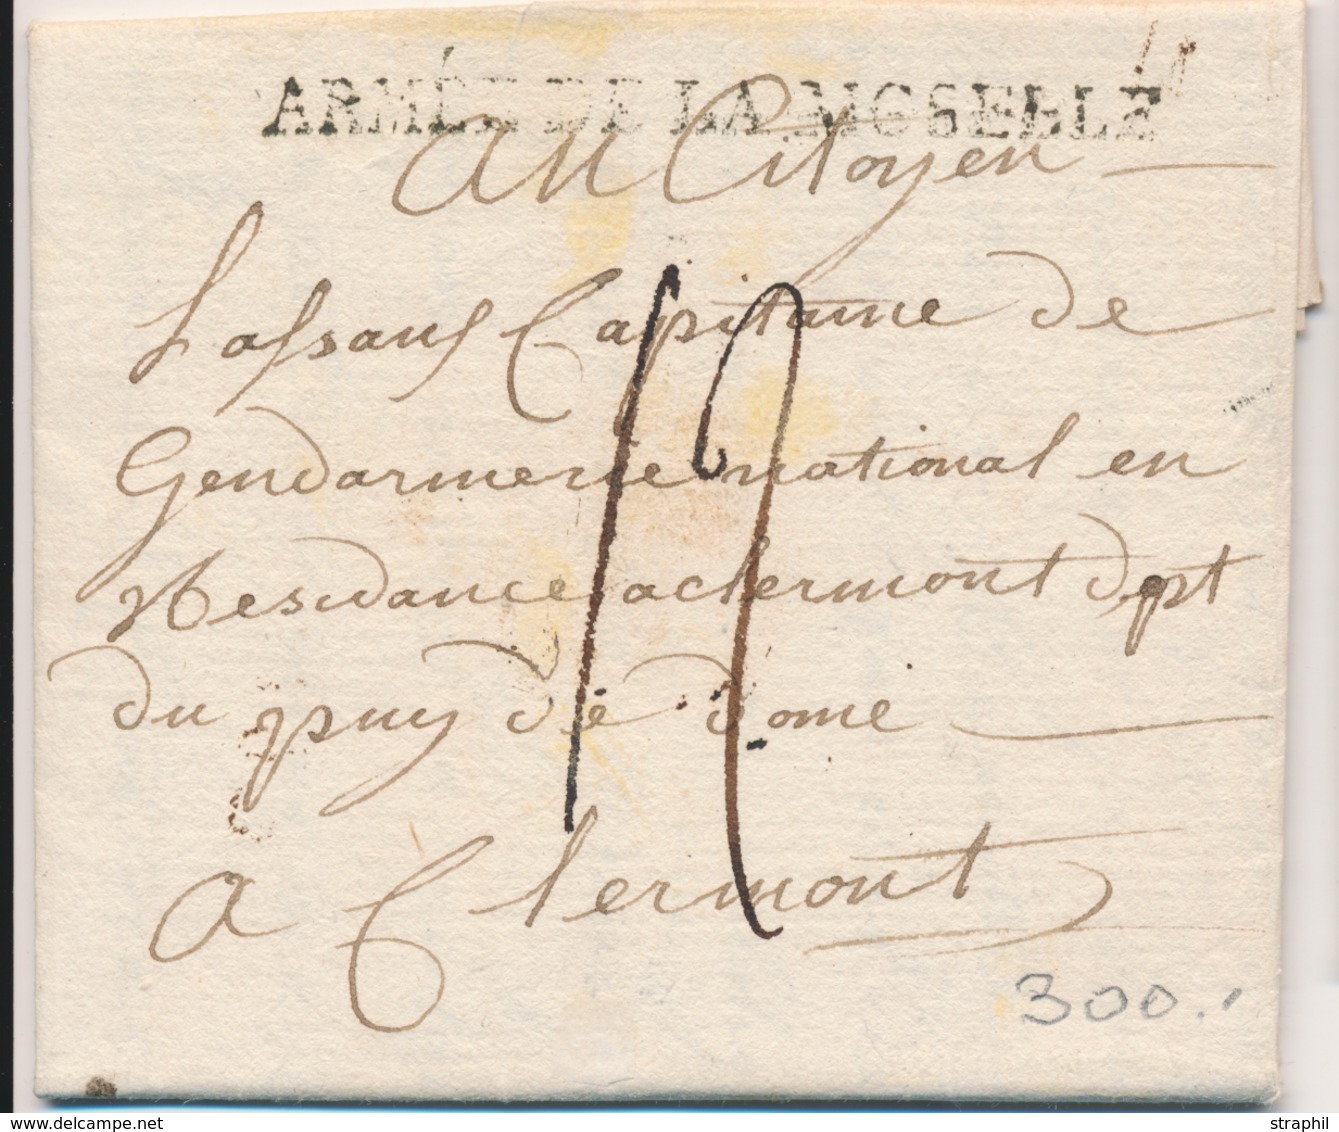 ARMÉE DE LA MOSELLE
Au Citoyen
Capitaine de
Gendarmerie national en
Residance a clermont dept
du puy de dome
a Clermont
12
300.
www.delcampe.net
straphil